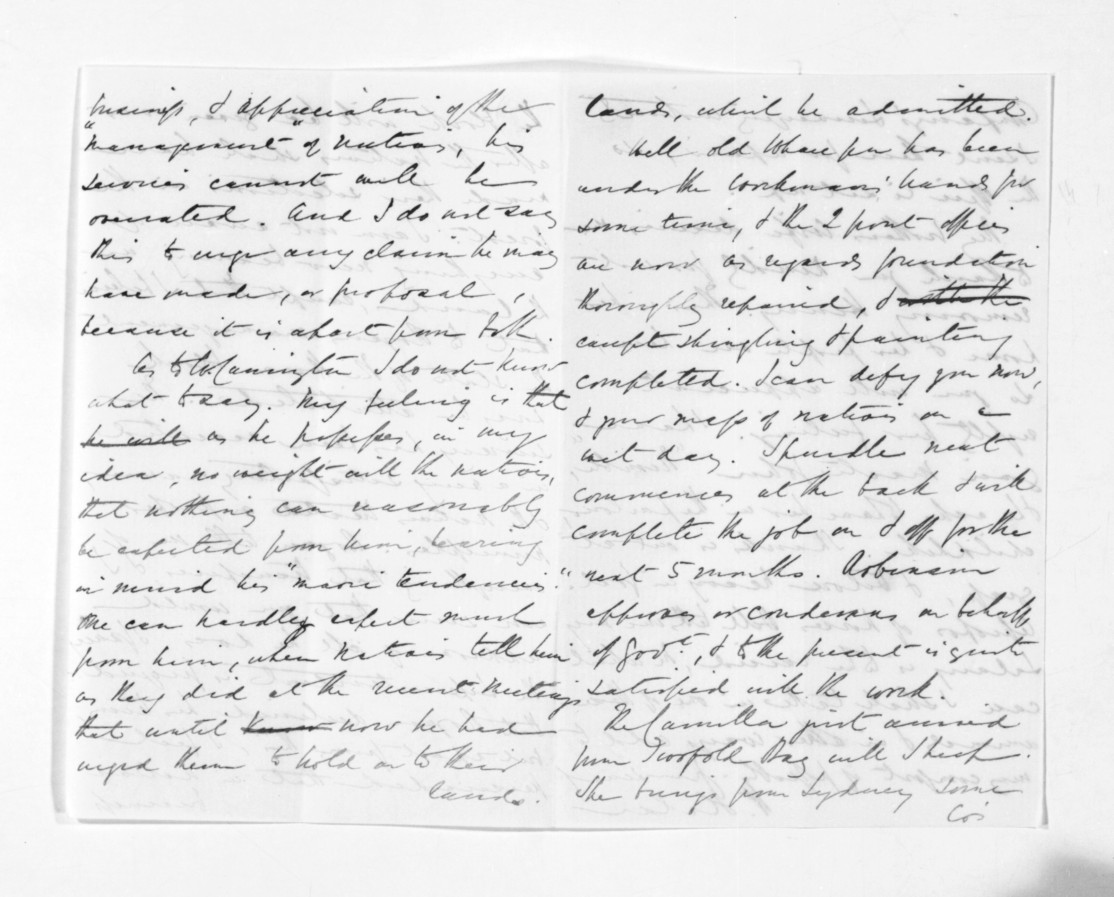 business, & appreciation of the
"management" of natives, his
services cannot well be
overrated. And I do not say
this to urge any claim he may
have made, or proposal,
because it is apart from both.
As to W. Cannington I do not know
what to say. My feeling is that
he will as he possesses, in my
idea, no weight with the natives,
that nothing can reasonably
be expected from him, bearing
in mind his "maori tendencies."
We can hardly expect much
from him, when natives tell him
as they did at the recent meetings
that until now he had
urged them to hold on to their
lands.
lands, which he admitted.
Well old Whare pu has been
under the workmans' hands for
some time, & the 2 front offices
are now as regards foundation
thoroughly repaired, & with the
except shingling & painting
completed. I can defy you now,
& your mass of natives on a
wet day. Spurdle next
commences at the back & will
complete the job on & off for the
next 5 months. Robinson
approves or condemns on behalf
of Govt., & to the present is quite
satisfied with the work.
The Camilla just arrived
from Twofold Bay with sheep.
She brings from Sydney some
Co's